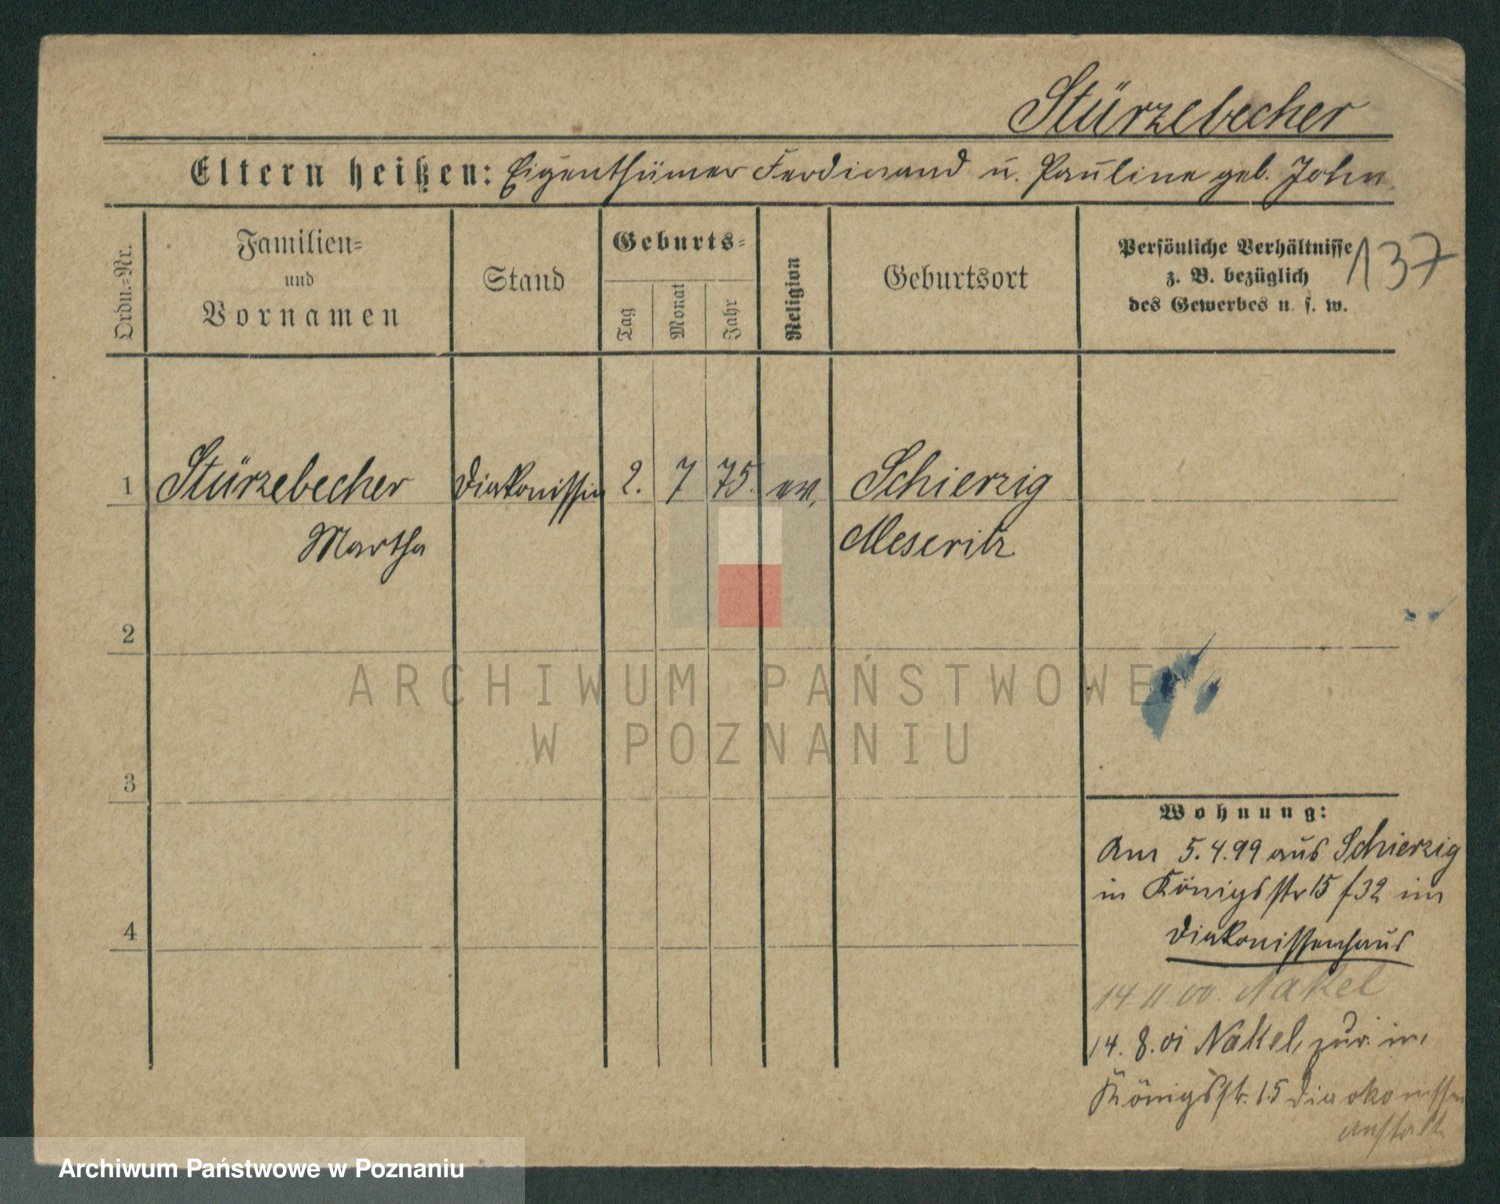 Stürzebecher
Eltern heißen: Eigenthümer Ferdinand u. Pauline geb. John
Ordn.-Nr.
Familien-
und
Vornamen
Stand
Geburts-
Tag
Monat
Jahr
Religion
Geburtsort
Persönliche Verhältnisse
z. B. bezüglich
des Gewerbes u. s. w.
137
1 Stürzebecher Diakonissin 2. 7 75. ev. Schierzig
Martha Meseritz
2
3
4
Wohnung:
Am 5.4.99 aus Schierzig
in Königsstr 15 f 32 im
Diakonissenhaus
14 11 00. Nakel
14. 8. 01 Nakel, zur. in
Königsstr. 15 Diakonissen
anstalt
ARCHIWUM PAŃSTWOWE
W POZNANIU
Archiwum Państwowe w Poznaniu